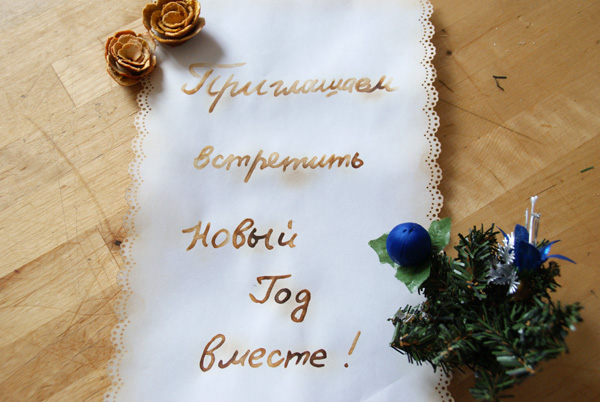 Приглашаем
встретить
Новый
Год
вместе!